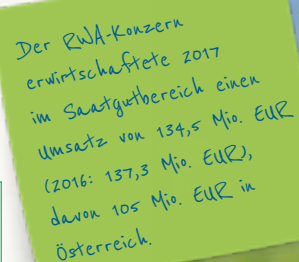 Der RWA-Konzern
erwirtschaftete 2017
im Saatgutbereich einen
Umsatz von 134,5 Mio. EUR
(2016: 137,3 Mio. EUR),
davon 105 Mio. EUR in
Österreich.